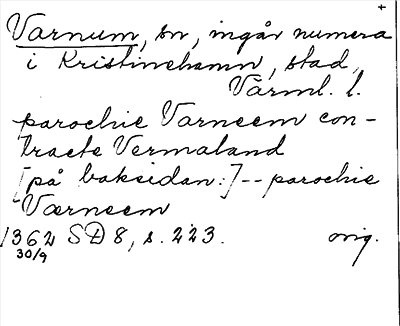 +
Varnum, sn, ingår numera
i Kristinehamn, stad,
Värml. l.
parochie Varneem con-
tracte Vermaland
[på baksidan:]-- parochie
Værneem
1362 SD 8, s. 223. orig.
30/9